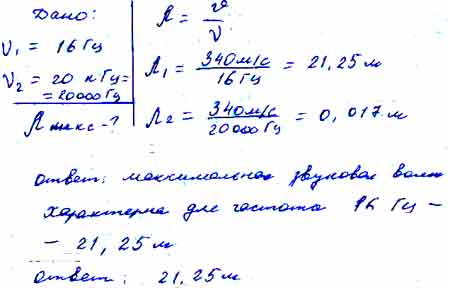 Дано:
ν₁ = 16 Гц
ν₂ = 20 кГц =
= 20000 Гц
λ макс - ?
λ = v/ν
λ₁ = 340 м/с / 16 Гц = 21,25 м
λ₂ = 340 м/с / 20000 Гц = 0,017 м
ответ: максимальная звуковая волна
характерна для частота 16 Гц -
- 21,25 м
ответ: 21,25 м